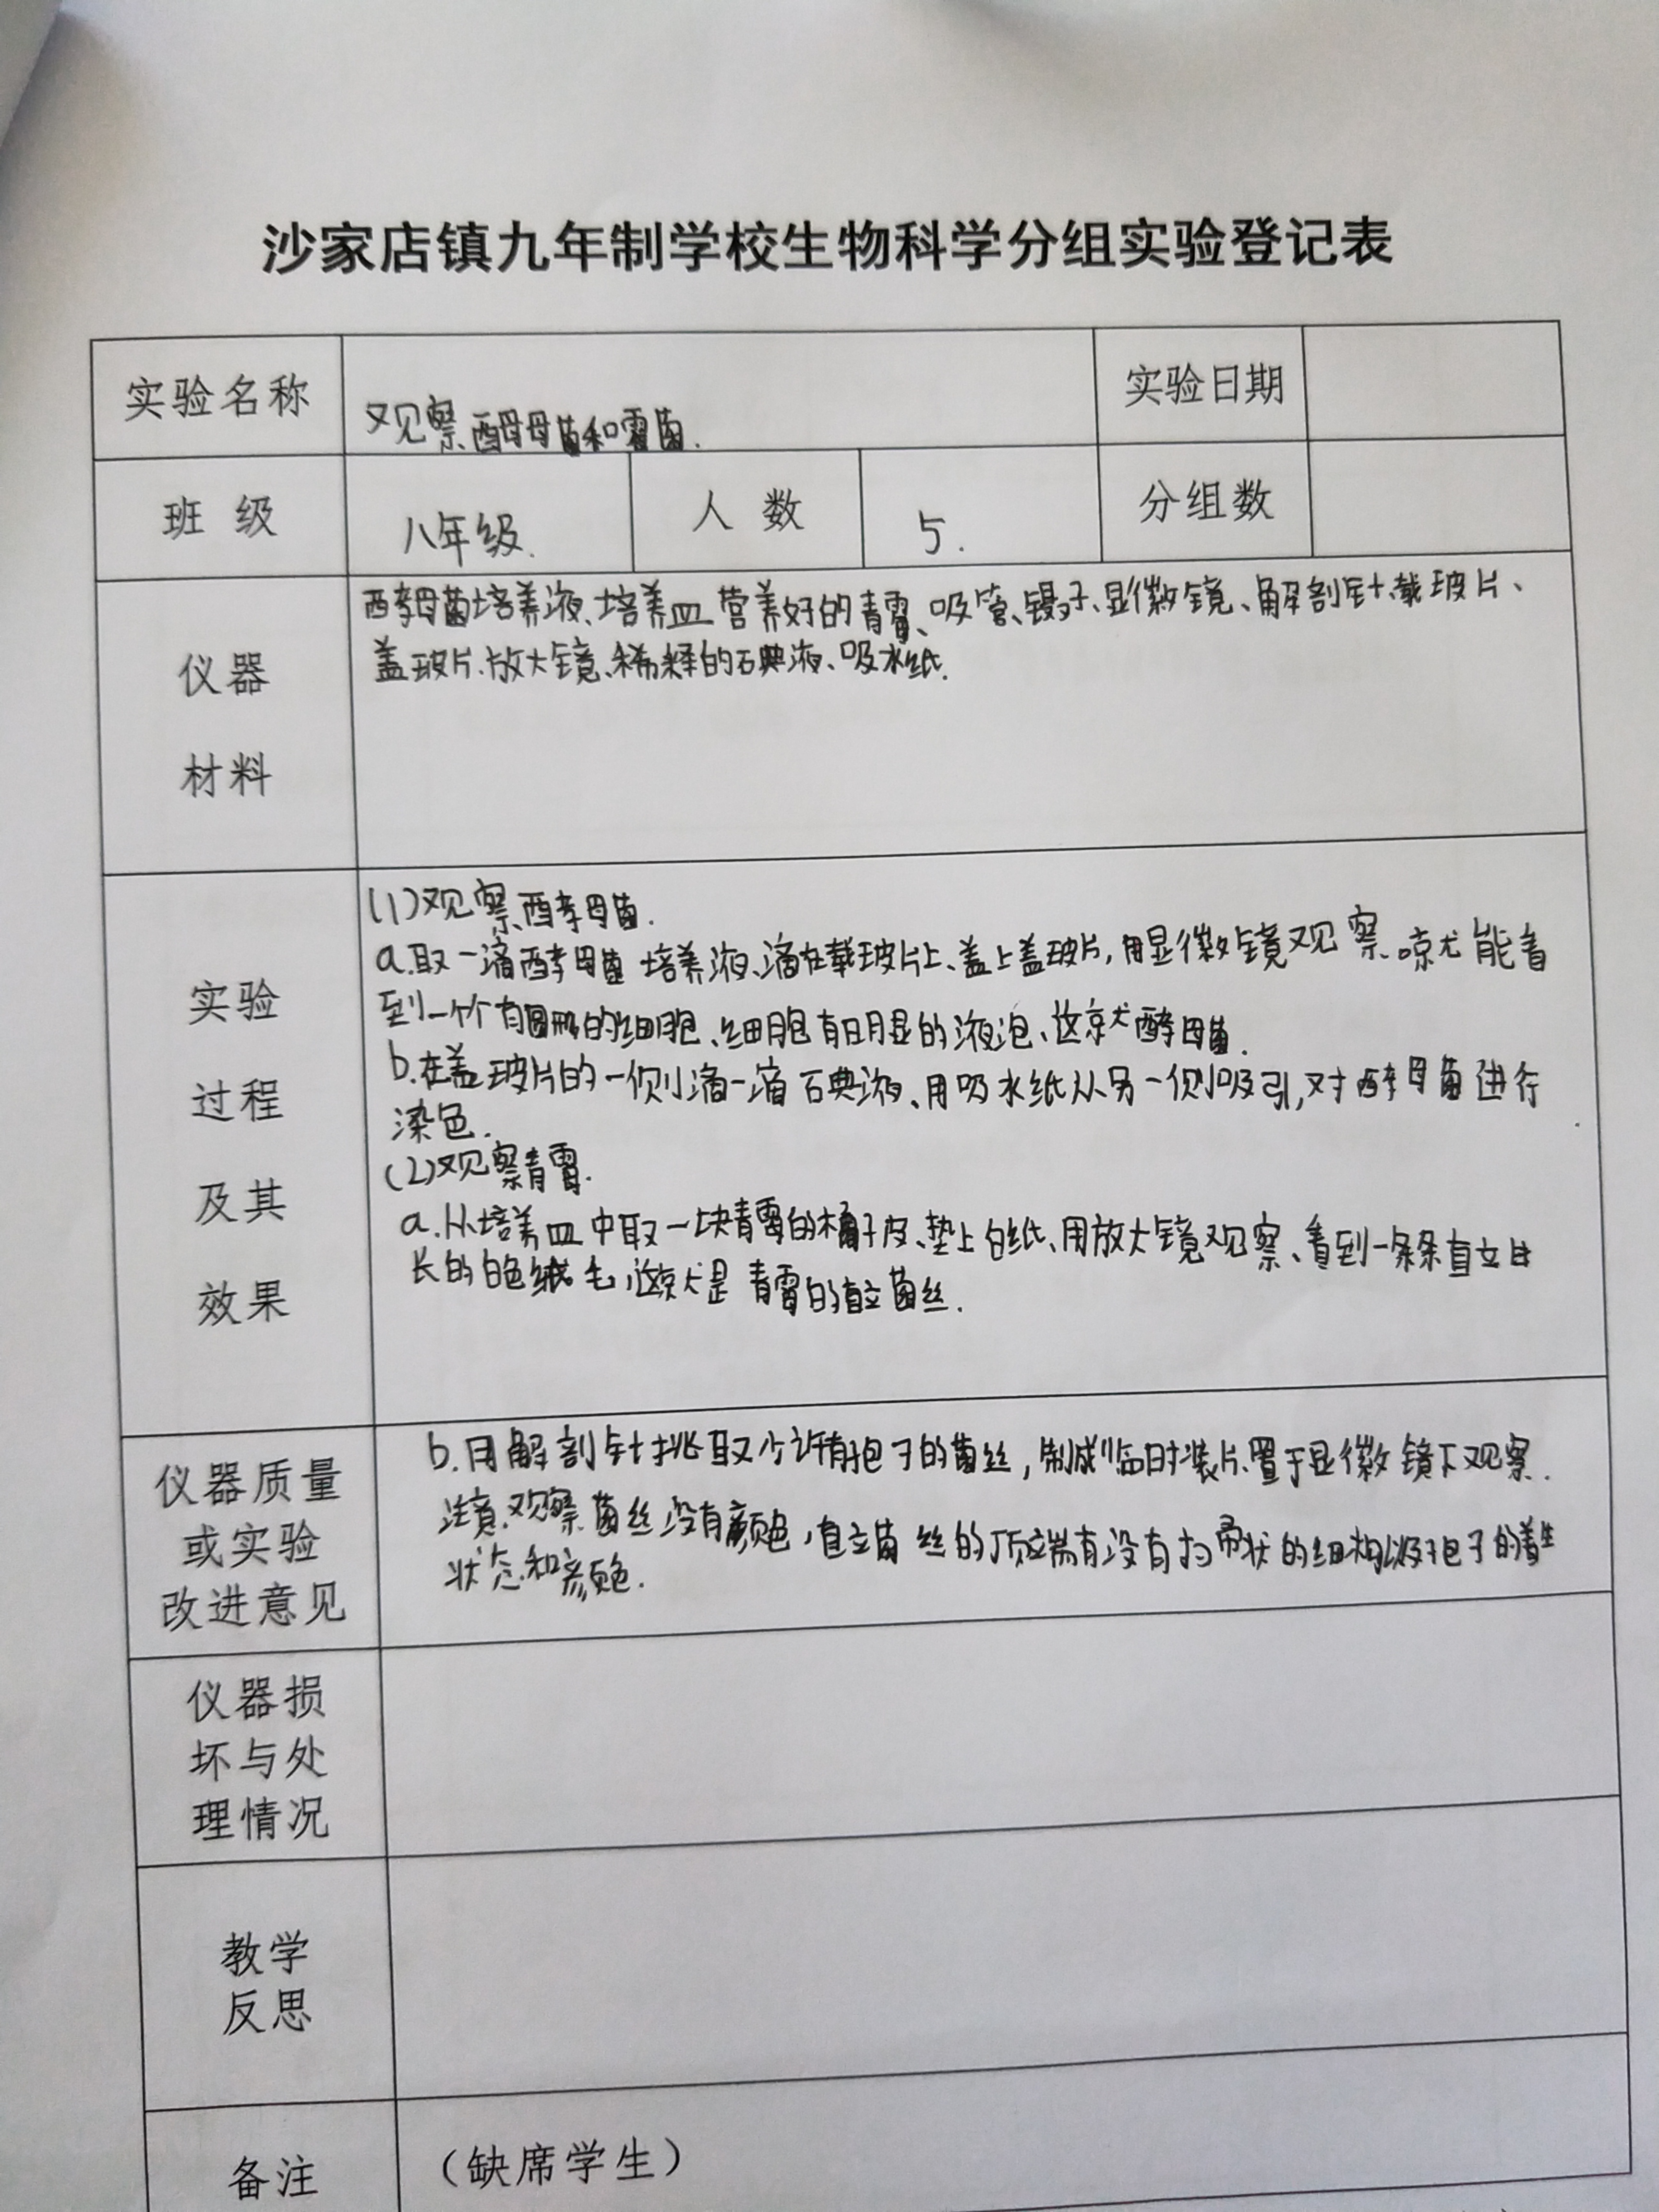 沙家店镇九年制学校生物科学分组实验登记表
实验名称 观察酵母菌和霉菌. 实验日期
班 级 八年级. 人 数 5. 分组数
仪器
材料
酵母菌培养液、培养皿营养好的青霉、吸管、镊子、显微镜、解剖针、载玻片、
盖玻片、放大镜、稀释的石典液、吸水纸.
实验
过程
及其
效果
(1)观察酵母菌.
a.取一滴酵母菌培养液、滴在载玻片上、盖上盖玻片,用显微镜观察.就能看
到一个个有圆形的细胞、细胞有明显的液泡、这就是酵母菌.
b.在盖玻片的一侧滴一滴石典液、用吸水纸从另一侧吸引,对酵母菌进行
染色.
(2)观察青霉.
a.从培养皿中取一块青霉的橘子皮、垫上白纸、用放大镜观察、看到一条条直立生
长的白色绒毛,这就是青霉的直立菌丝.
仪器质量
或实验
改进意见
b.用解剖针挑取少许有孢子的菌丝,制成临时装片、置于显微镜下观察.
注意观察菌丝没有颜色,直立菌丝的顶端有没有扫帚状的结构以及孢子的着生
状态和颜色.
仪器损
坏与处
理情况
教学
反思
备注 (缺席学生)